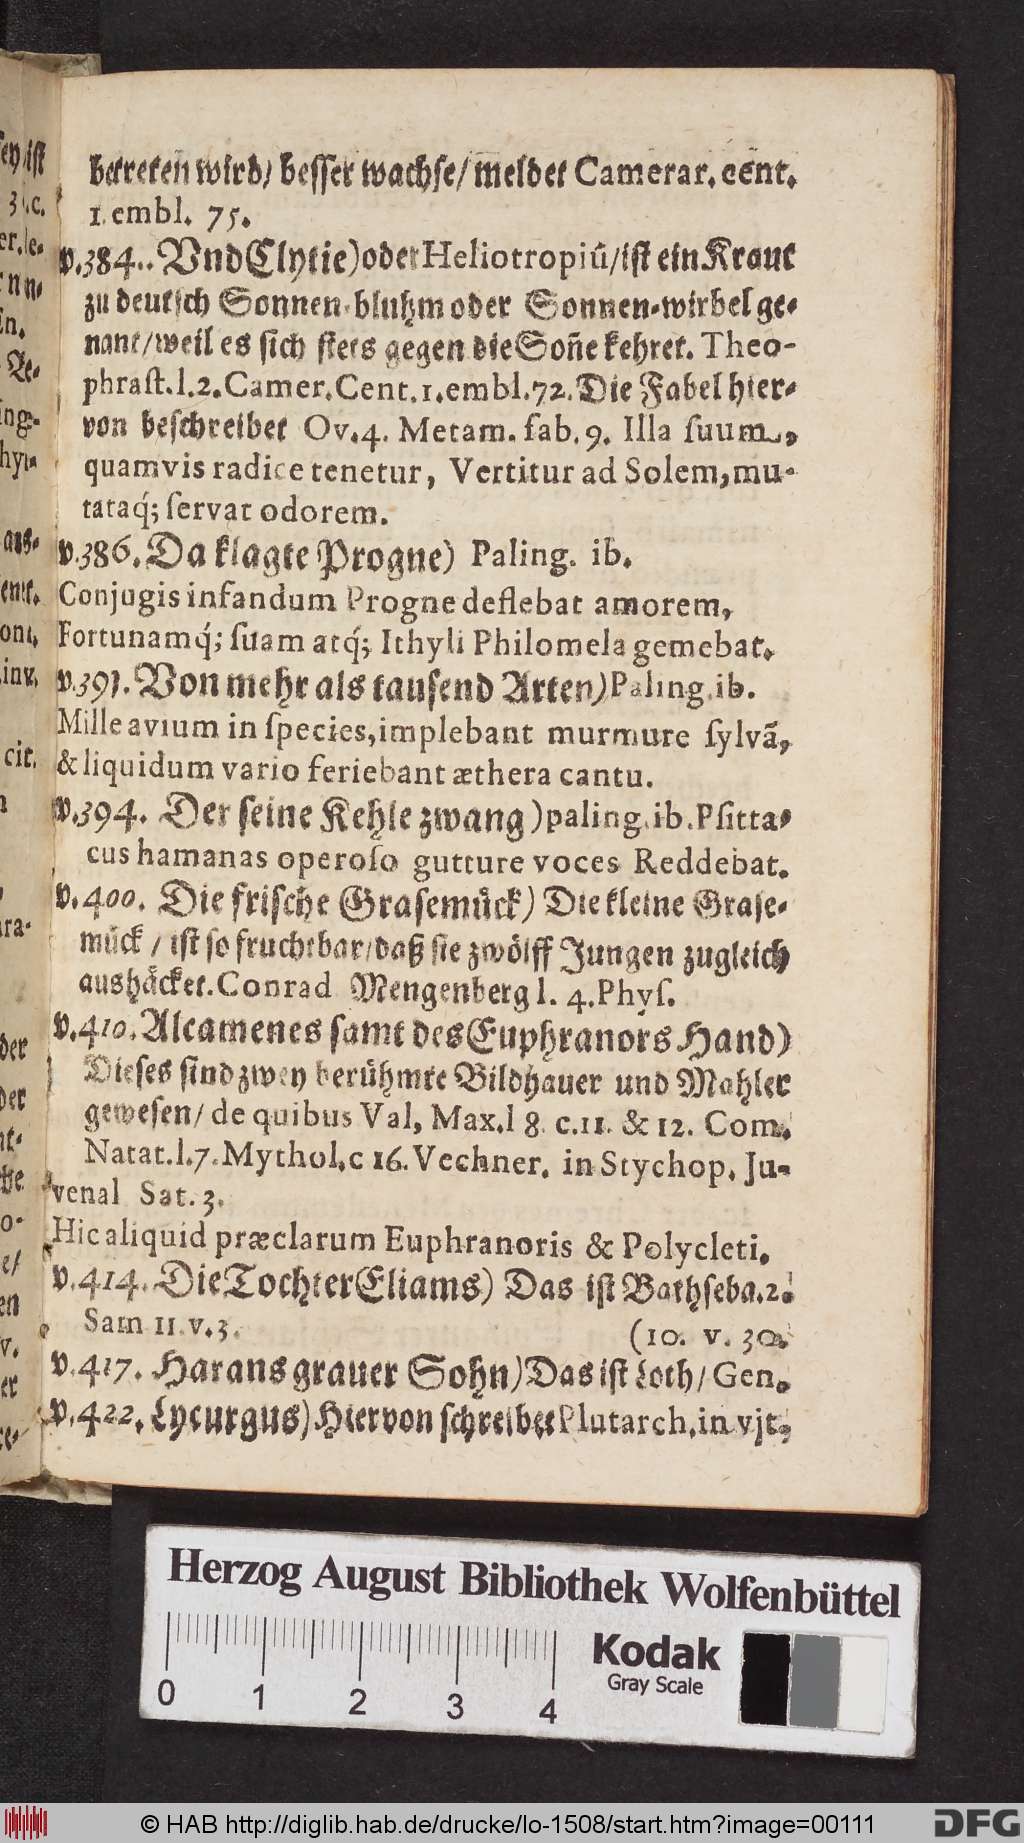 betreten wird/ besser wachse/ meldet Camerar. cent.
1. embl. 75.
v.384.. Vnd Clytie) oder Heliotropiũ/ ist ein Kraut
zu deutsch Sonnen-bluhm oder Sonnen-wirbel ge-
nant/ weil es sich stets gegen die Son̄e kehret. Theo-
phrast. l. 2. Camer. Cent. 1. embl. 72. Die Fabel hier-
von beschreibet Ov. 4. Metam. fab. 9. Illa suum,
quamvis radice tenetur, Vertitur ad Solem, mu-
tataq́; servat odorem.
v.386. Da klagte Progne) Paling. ib.
Conjugis infandum Progne deflebat amorem,
Fortunamq́; suam atq́; Ithyli Philomela gemebat.
v.391. Von mehr als tausend Arten) Paling. ib.
Mille avium in species, implebant murmure sylvã,
& liquidum vario feriebant æthera cantu.
v.394. Der seine Kehle zwang) paling. ib. Psitta-
cus hamanas operoso gutture voces Reddebat.
v. 400. Die frische Grasemück) Die kleine Grase-
mück / ist so fruchtbar/ daß sie zwölff Jungen zugleich
aushäcket. Conrad Mengenberg l. 4. Phys.
v.410. Alcamenes samt des Euphranors Hand)
Dieses sind zwey berühmte Bildhauer und Mahler
gewesen/ de quibus Val, Max. l 8. c. 11. & 12. Com.
Natat. l. 7. Mythol. c 16. Vechner. in Stychop. Ju-
venal Sat. 3.
Hic aliquid præclarum Euphranoris & Polycleti.
v.414. Die Tochter Eliams) Das ist Bathseba. 2.
Sam 11. v. 3. (10. v. 30.
v.417. Harans grauer Sohn) Das ist Loth/ Gen.
v.422. Lycurgus) Hiervon schreibet Plutarch. in vjt.
Herzog August Bibliothek Wolfenbüttel
Kodak
Gray Scale
0 1 2 3 4
© HAB http://diglib.hab.de/drucke/lo-1508/start.htm?image=00111
DFG